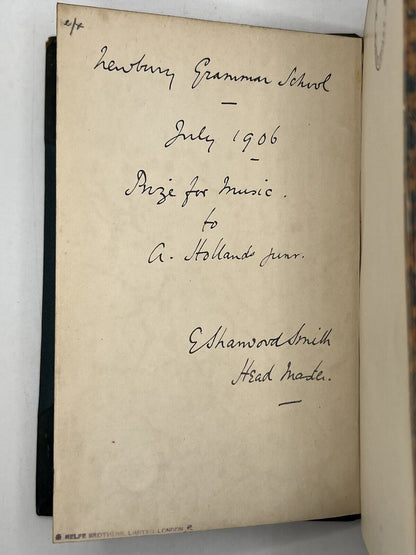 e/x
Newbury Grammar School
July 1906
Prize for Music.
to
A. Hollands junr.
E Sharwood Smith
Head Master.
RELFE BROTHERS, LIMITED, LONDON